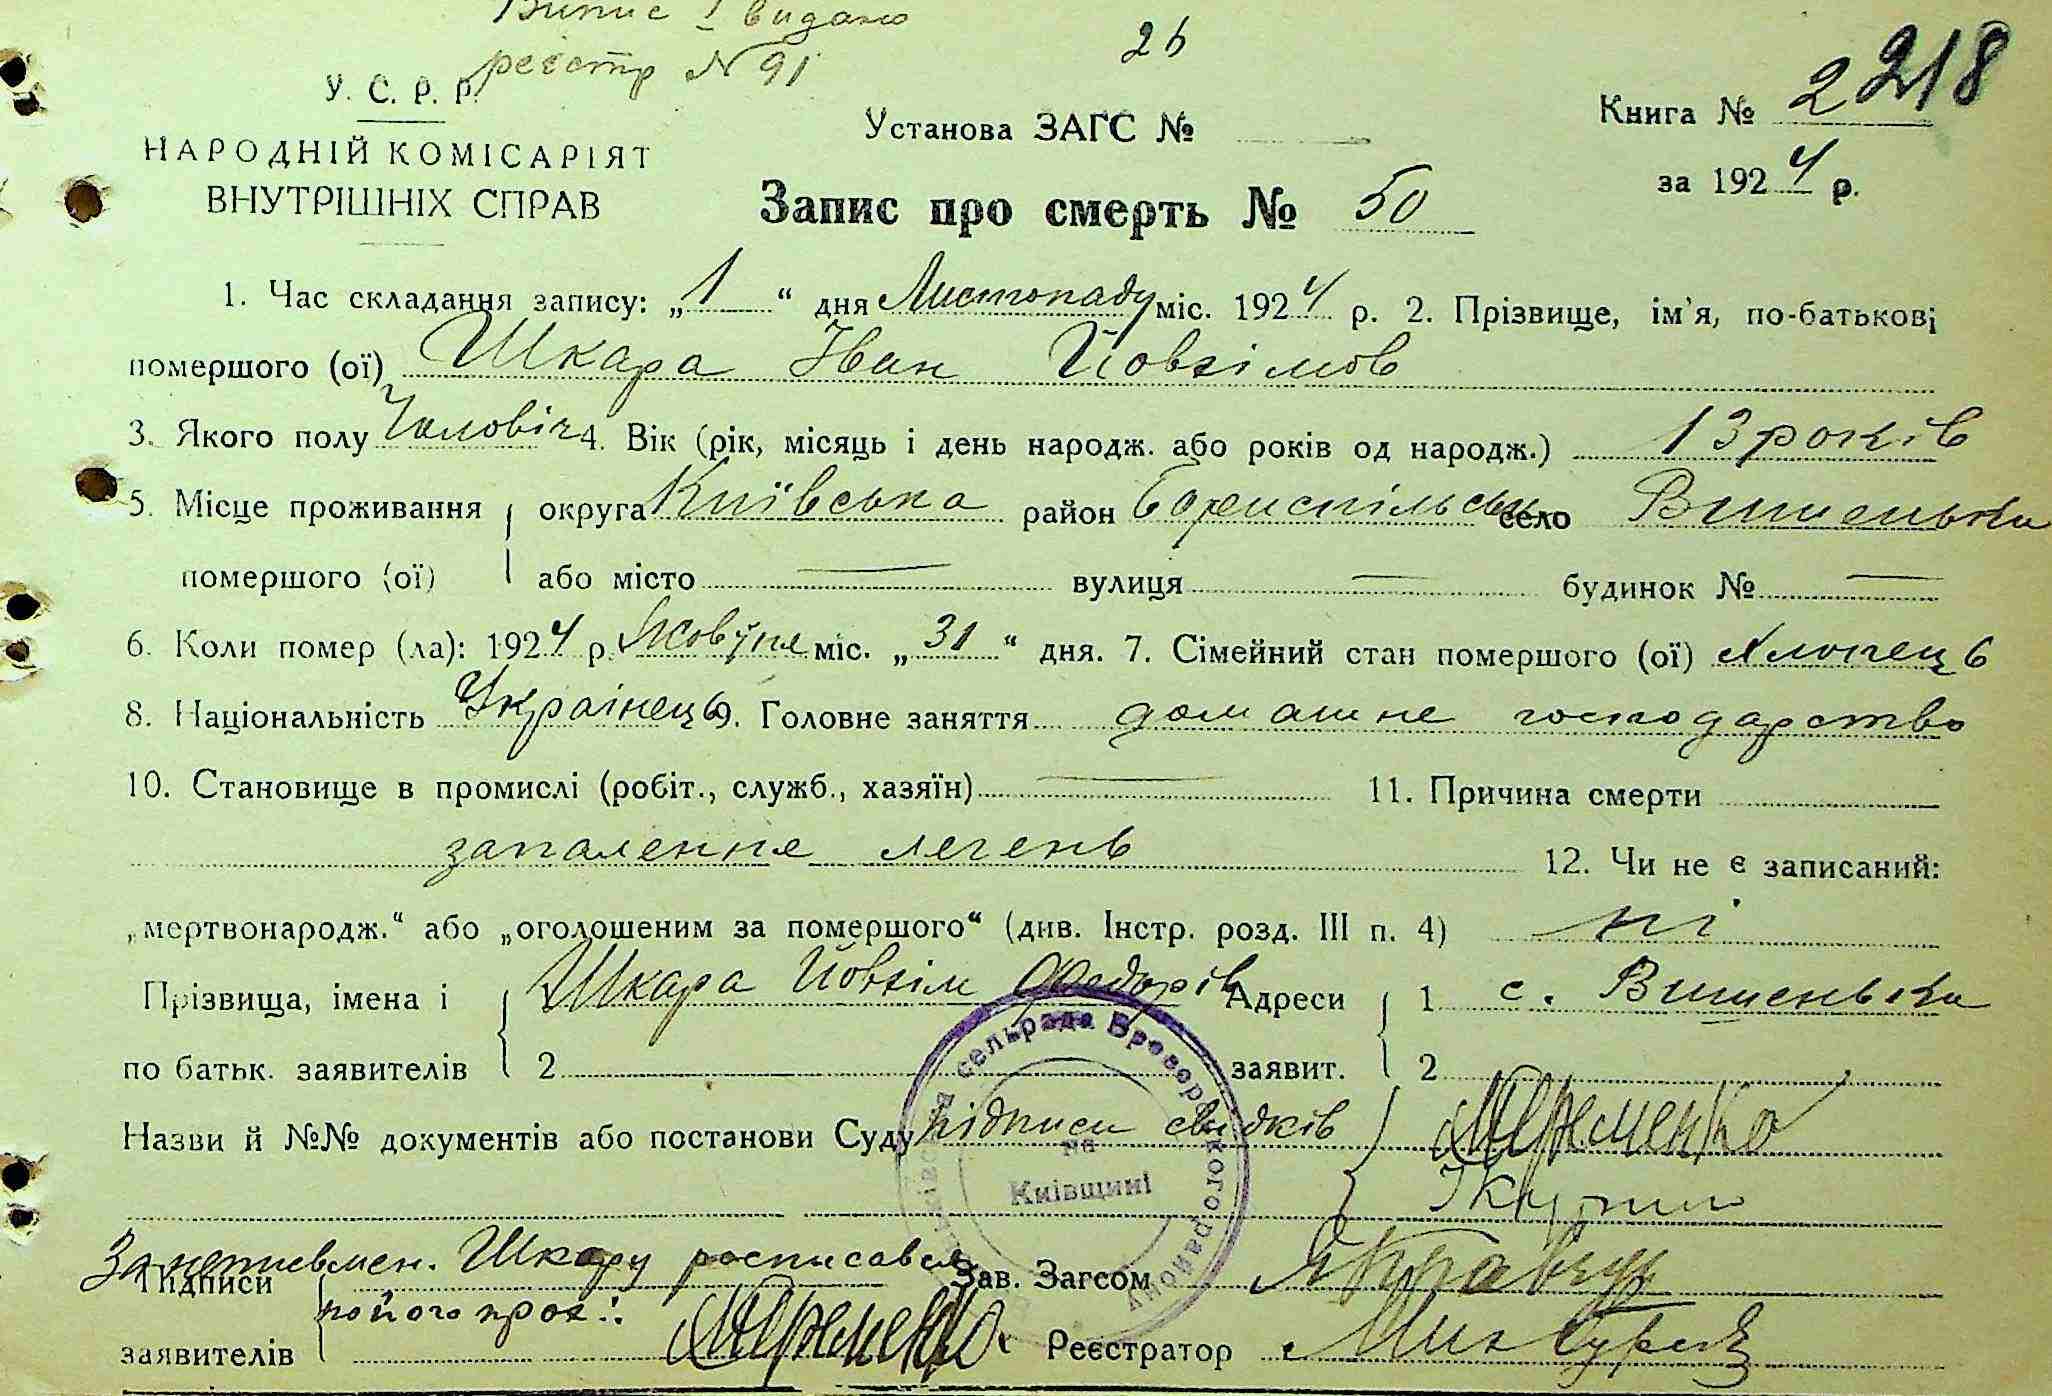 Випис І видано
реєстр № 91
26
218
У. С. Р. Р.
НАРОДНІЙ КОМІСАРІЯТ
ВНУТРІШНІХ СПРАВ
Установа ЗАГС №
Книга № 2
за 1924 р.
Запис про смерть № 50
1. Час складання запису: „1“ дня Листопаду міс. 1924 р. 2. Прізвище, ім'я, по-батькові
помершого (ої) Шкара Іван Йовхімов
3. Якого полу Чоловіч 4. Вік (рік, місяць і день народж. або років од народж.) 13 років
5. Місце проживання округа Київська район Бориспільськ село Вишеньки
помершого (ої) або місто — вулиця — будинок № —
6. Коли помер (ла): 1924 р. Жовтня міс. „31“ дня. 7. Сімейний стан помершого (ої) хлопець
8. Національність Украінець 9. Головне заняття домашне господарство
10. Становище в промислі (робіт., служб., хазяїн) — 11. Причина смерти
запалення легень 12. Чи не є записаний:
„мертвонародж.“ або „оголошеним за помершого“ (див. Інстр. розд. III п. 4) ні
Прізвища, імена і 1 Шкара Йовхім Федорів Адреси 1 с. Вишеньки
по батьк. заявителів 2 заявит. 2
Назви й №№ документів або постанови Суду підписи свидків Яременко
сельрада Броварського району
на
Київщині
За неписьмен. Шкару росписався
Підписи Зав. Загсом
по його прох.: Яременко
заявителів Реєстратор